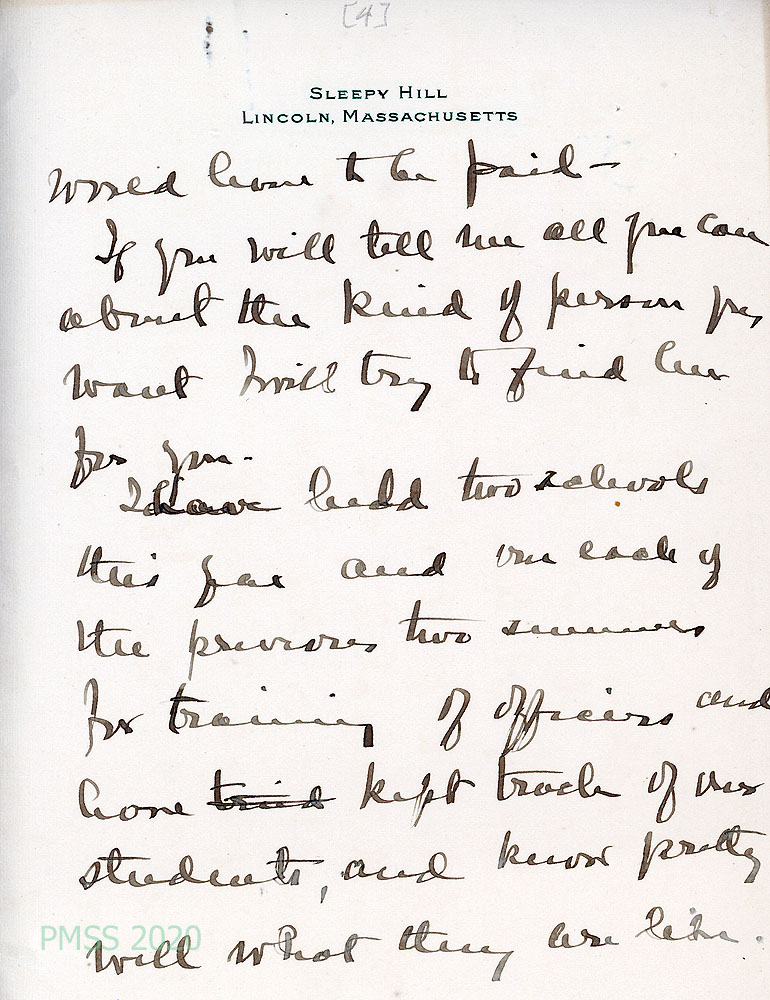 [4]
SLEEPY HILL
LINCOLN, MASSACHUSETTS
would have to be paid—
If you will tell me all you can
about the kind of person you
want I will try to find her
for you.
I have had two schools
this year and one each of
the previous two summers
for training of officers and
have tried kept track of our
students, and know pretty
well what they are like.
PMSS 2020